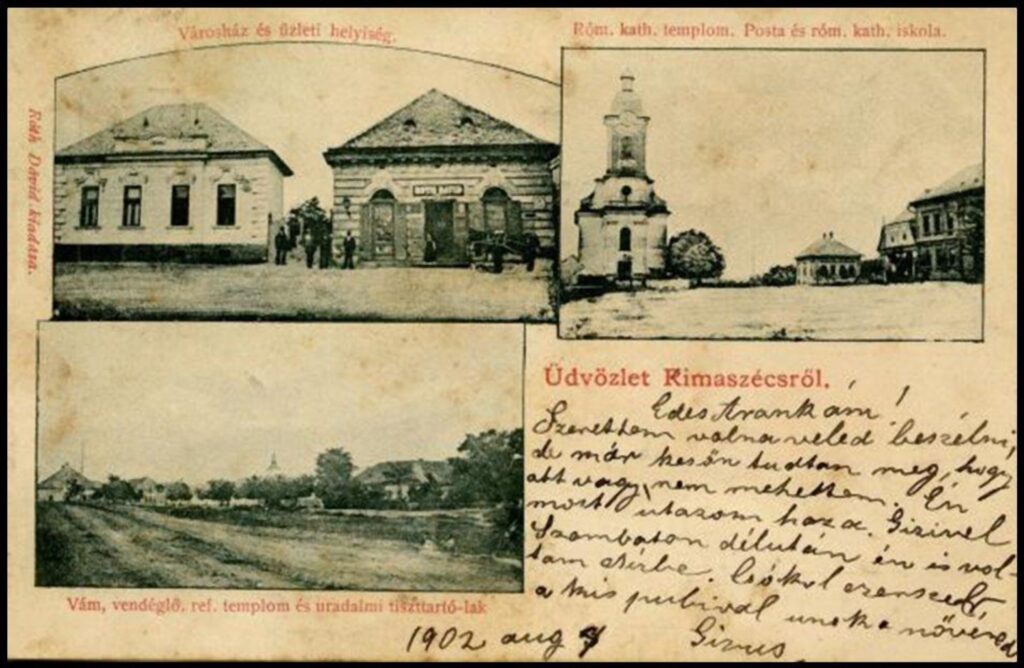 Városház és üzleti helyiség.
Róm. kath. templom. Posta és róm. kath. iskola.
Róth Dávid kiadása.
ROTH DAVID
Üdvözlet Rimaszécsről.
Edes Arankám!
Szerettem volna veled beszélni,
de már későn tudtam meg, hogy
ott vagy, nem mehettem. Én
most utazom haza. Gizivel
Szombaton délután én is vol-
tam
a kis pubival unoka nővéred
Gizus
Vám, vendéglő, ref. templom és uradalmi tiszttartó-lak
1902 aug